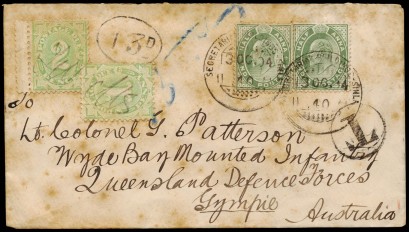 13D
13 OC. 04
11 40
T
To
Lt. Colonel G. Patterson
Wyde Bay Mounted Infantry
Queensland Defence Forces
Gympie
Australia